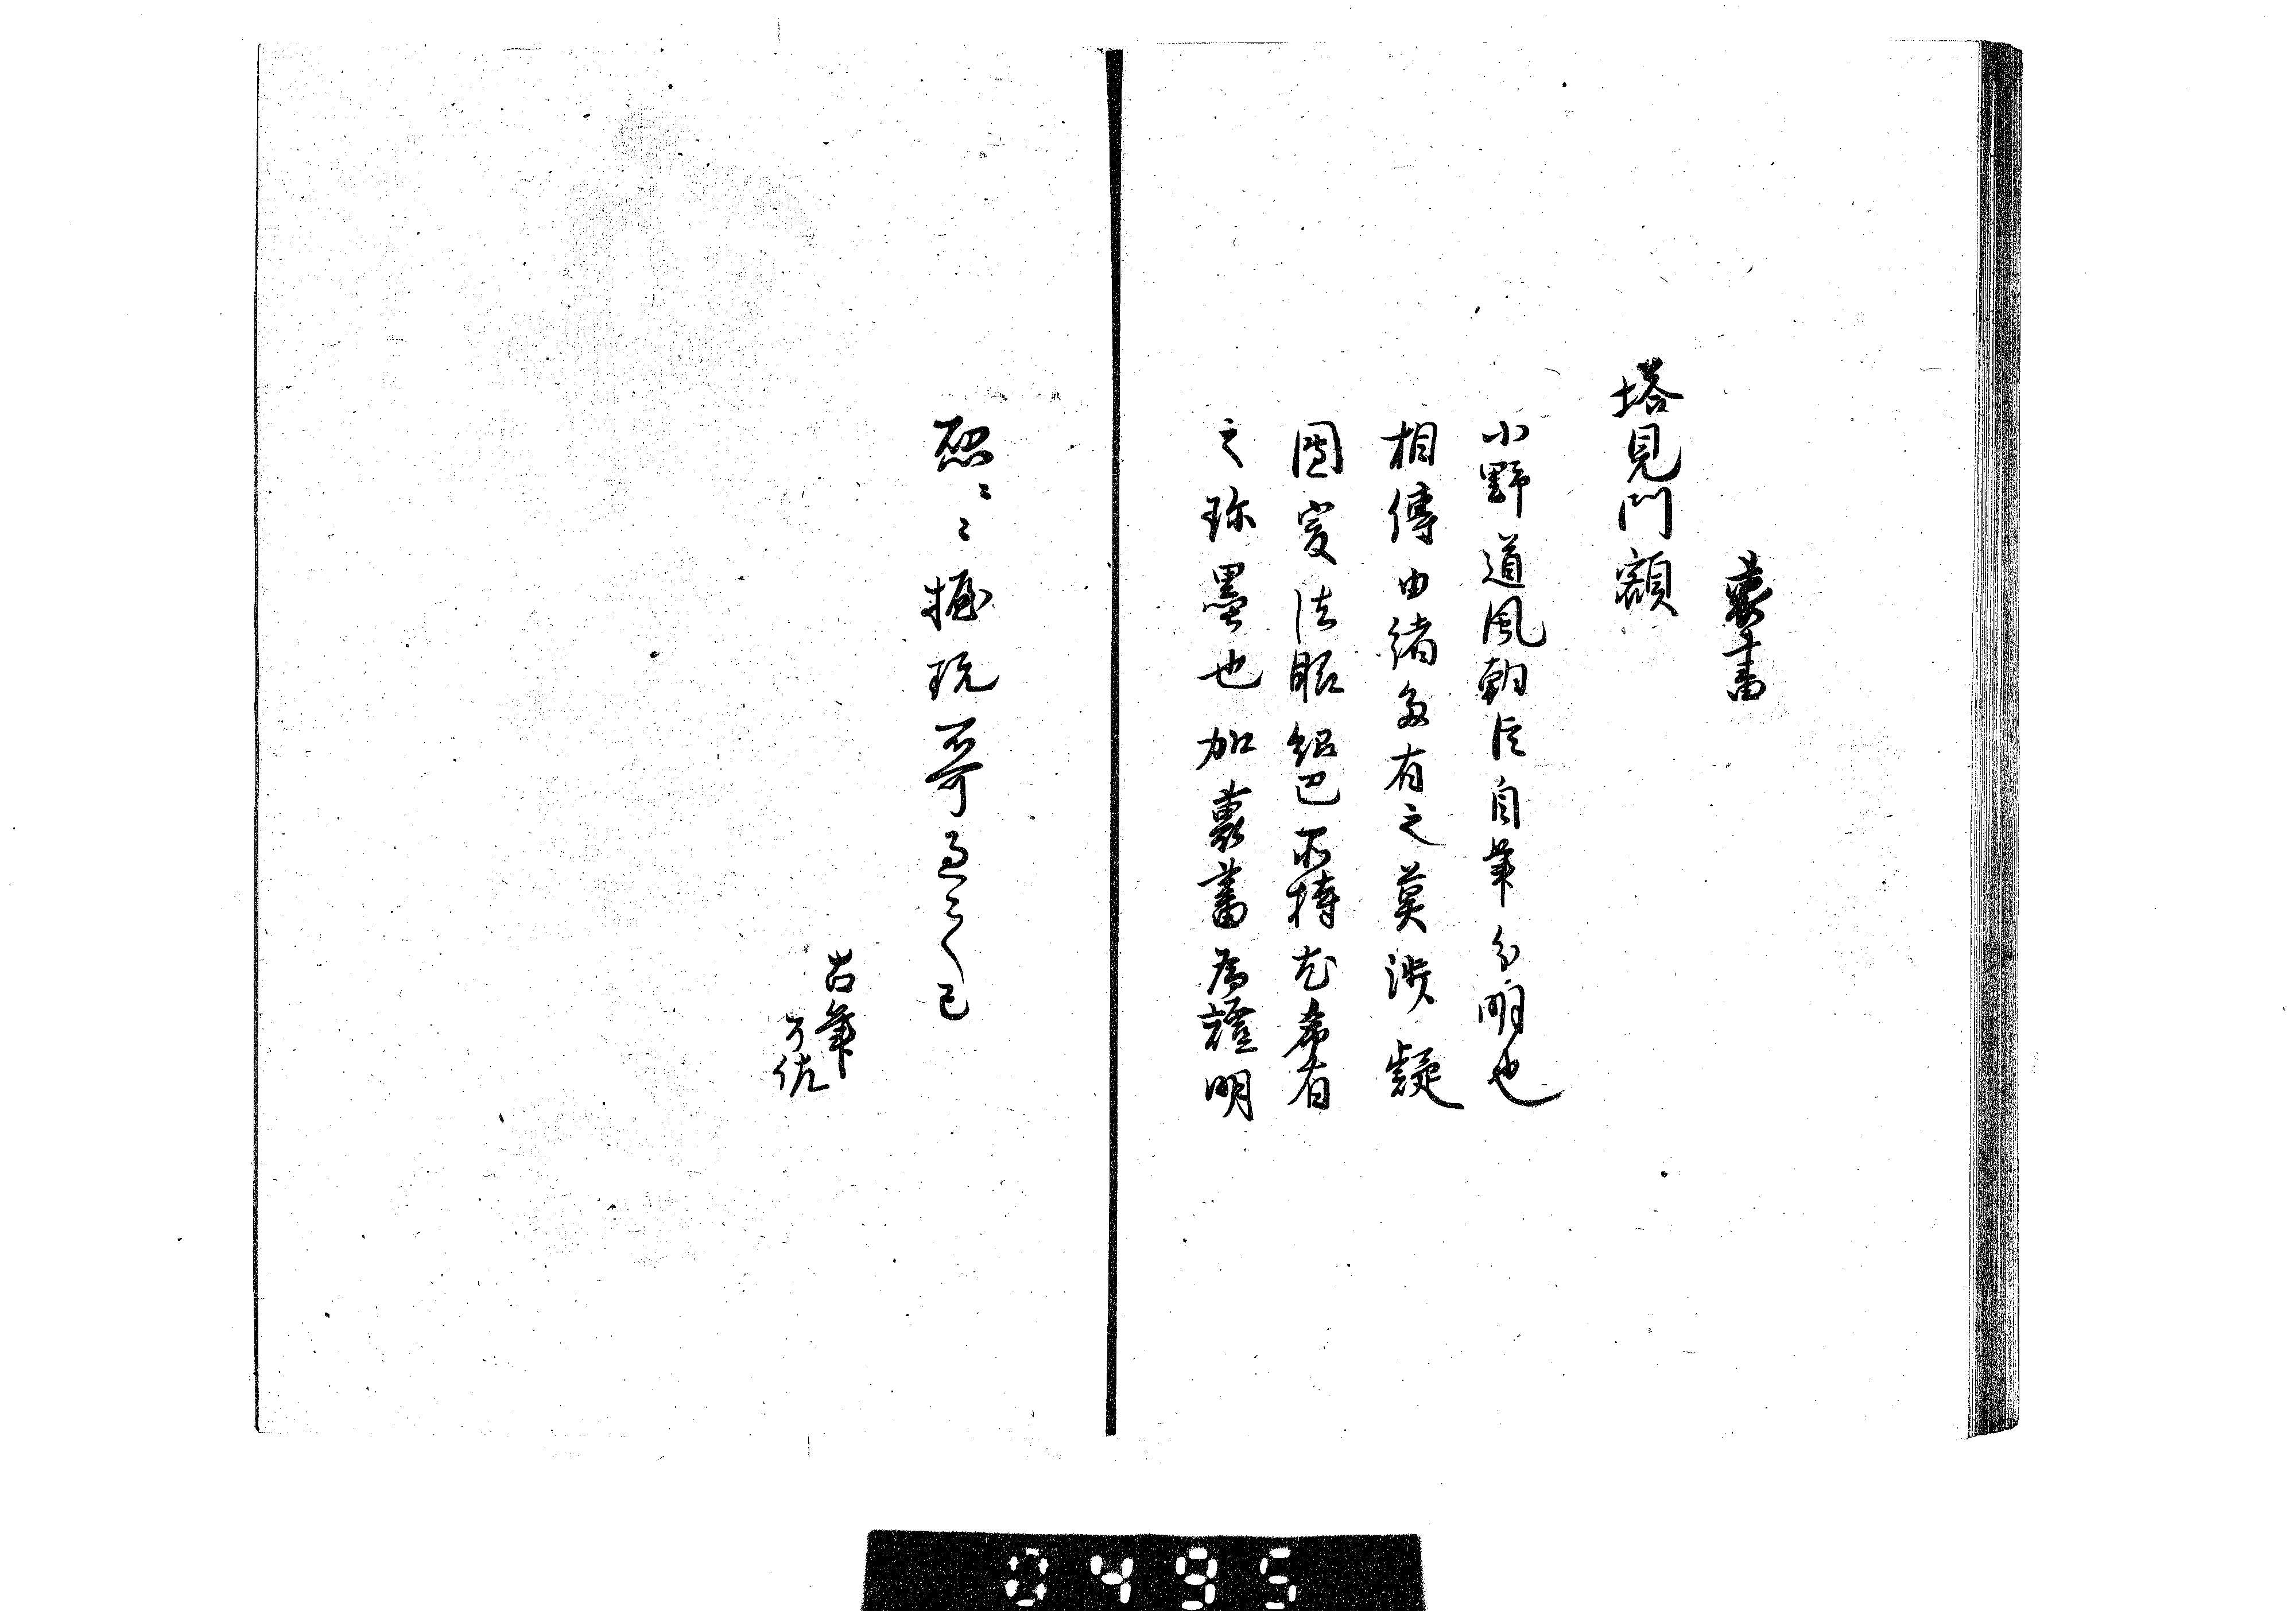 裏書
塔見門額
小野道風朝臣自筆分明也
相傳由緒多有之莫渉疑
圖変法眼紹巴所持尤希有
之珎墨也加裏書為證明
愍〻〻握玩哥
已
古筆
了佐
0495